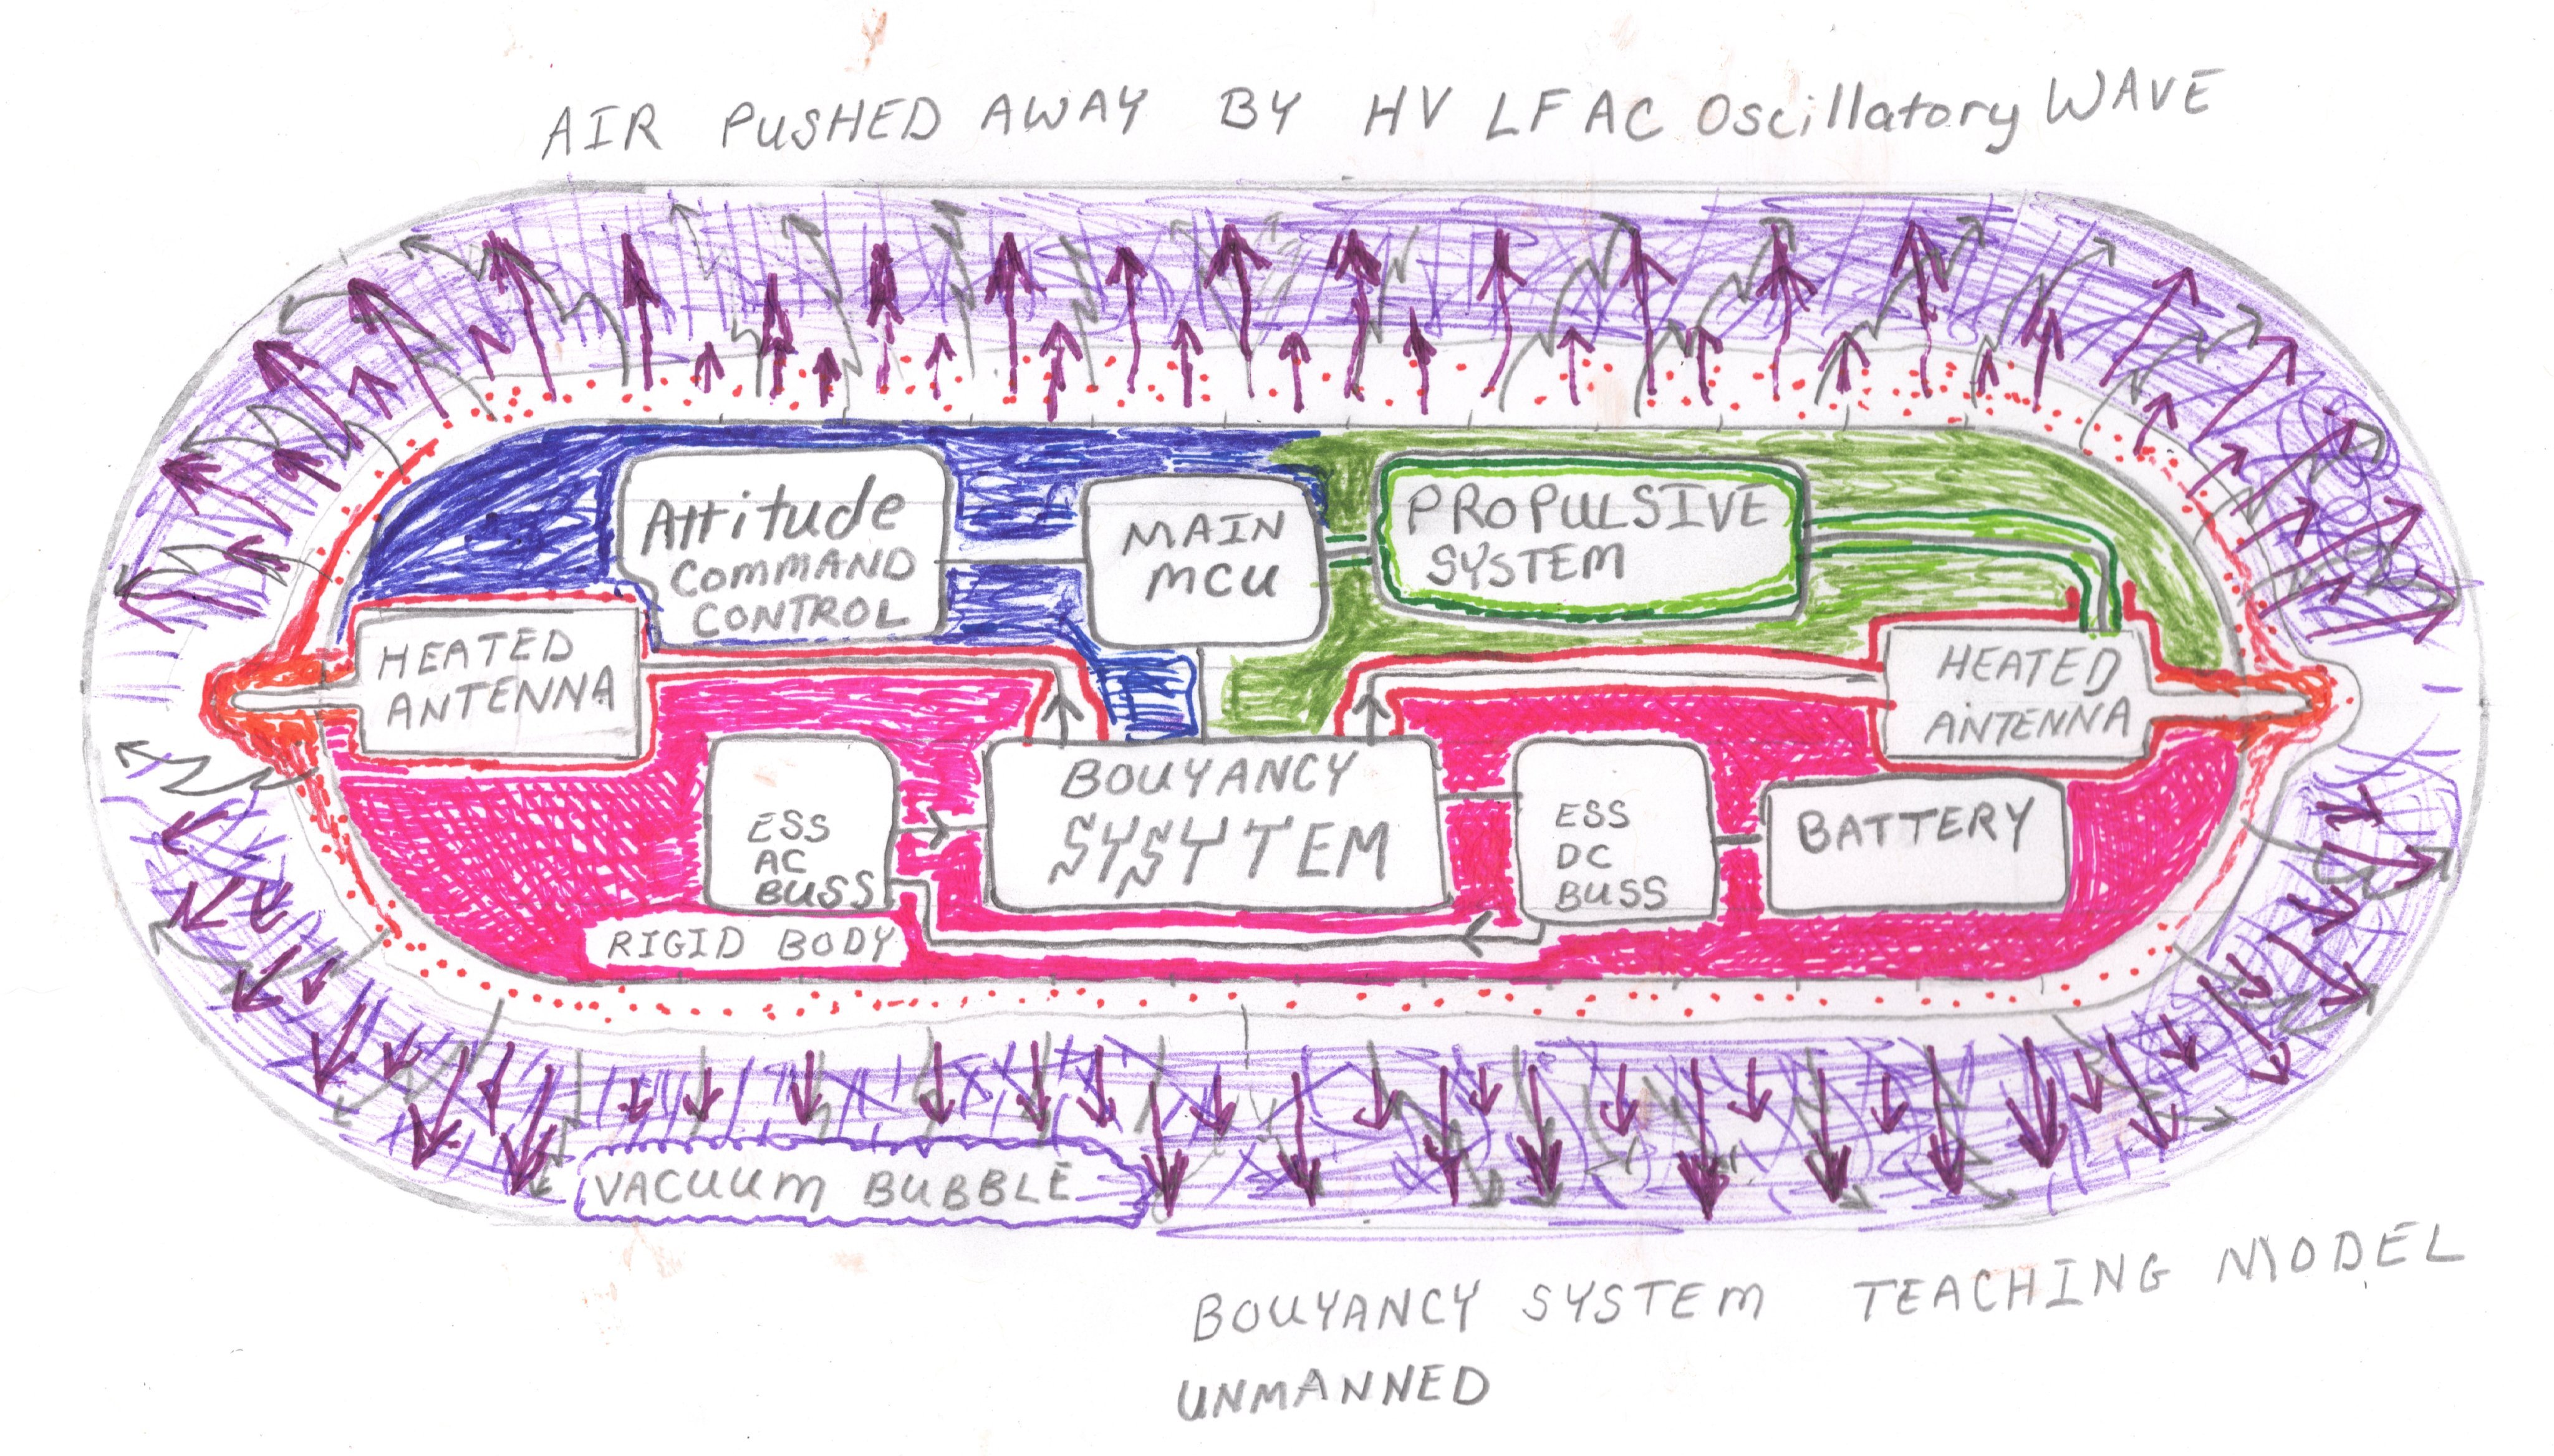 AIR PUSHED AWAY BY HV LF AC Oscillatory WAVE
Attitude
COMMAND
CONTROL
MAIN
MCU
PROPULSIVE
SYSTEM
HEATED
ANTENNA
HEATED
ANTENNA
ESS
AC
BUSS
BOUYANCY
SYSYTEM
ESS
DC
BUSS
BATTERY
RIGID BODY
VACUUM BUBBLE
BOUYANCY SYSTEM TEACHING MODEL
UNMANNED